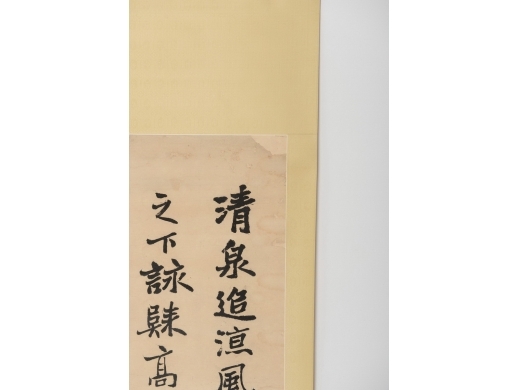 清泉追涼風
之下詠歸高